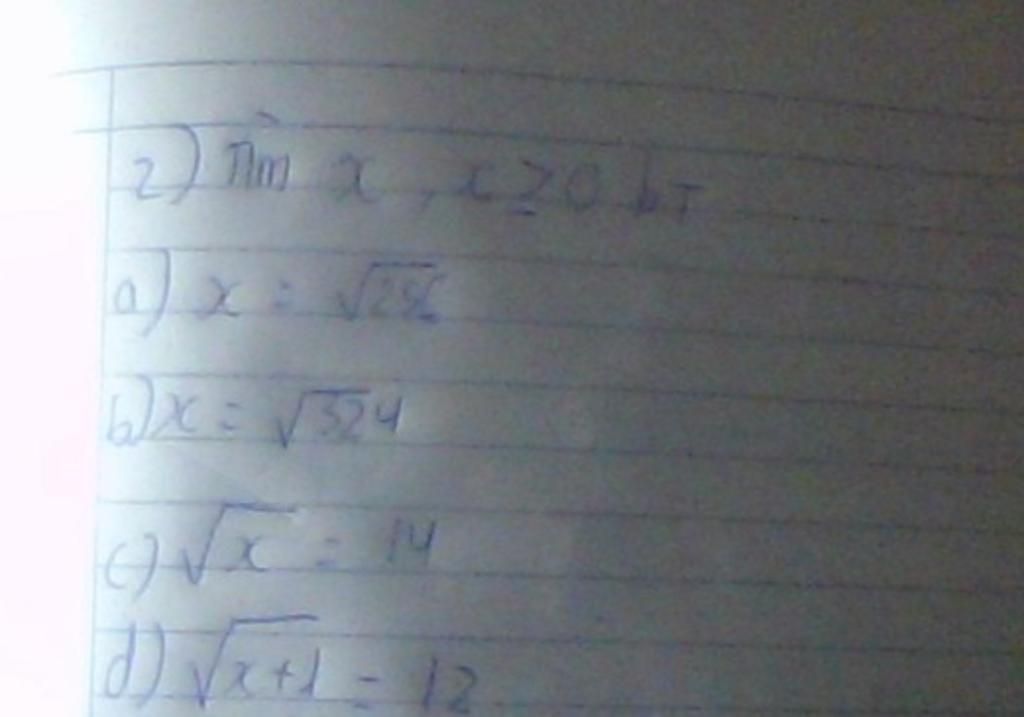 2) Tìm x, x ≥ 0 bт
a) x = √256
b) x = √324
c) √x = 14
d) √x+1 = 12